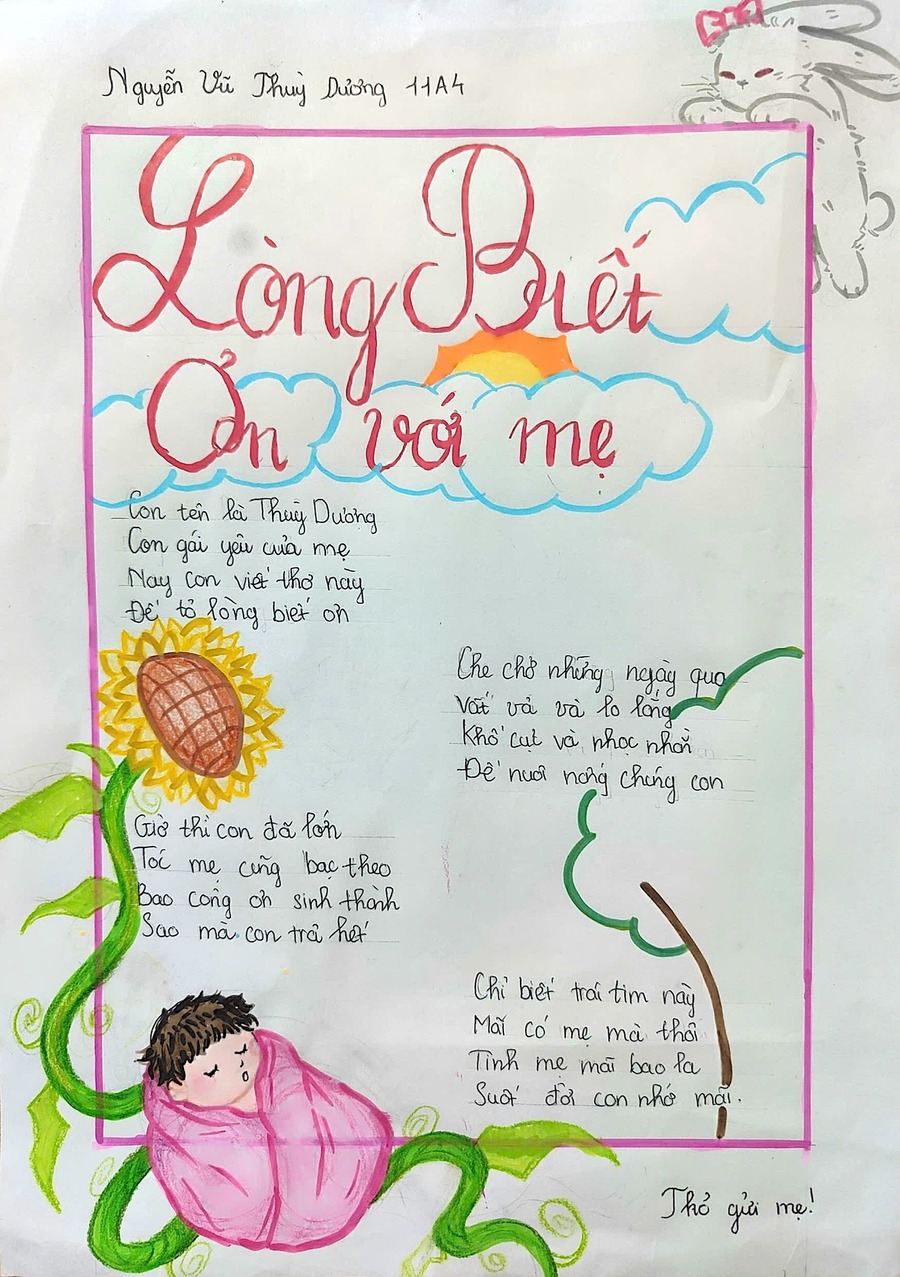 Nguyễn Vũ Thuỳ Dương 11A4
Lòng Biết
Ơn với mẹ
Con tên là Thuỳ Dương
Con gái yêu của mẹ
Nay con viết thơ này
Để tỏ lòng biết ơn
Che chở những ngày qua
Vất vả và lo lắng
Khổ cực và nhọc nhằn
Để nuôi nấng chúng con
Giờ thì con đã lớn
Tóc mẹ cũng bạc theo
Bao công ơn sinh thành
Sao mà con trả hết
Chỉ biết trái tim này
Mãi có mẹ mà thôi
Tình mẹ mãi bao la
Suốt đời con nhớ mãi.
Thỏ gửi mẹ!